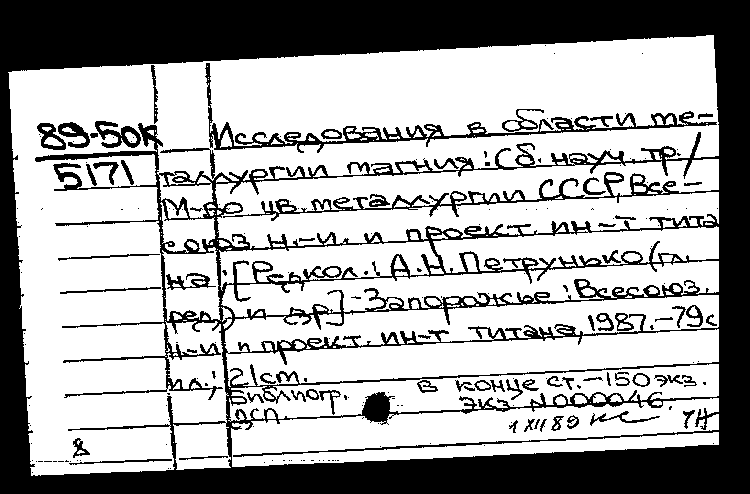 89-50К Исследования в области ме-
5171 таллургии магния: Сб. науч. тр. /
М-во цв. металлургии СССР, Все-
союз. н.-и. и проект. ин-т тита
на; [Редкол.: А.Н. Петрунько (гл.
ред.) и др.]. - Запорожье: Всесоюз.
н.-и. и проект. ин-т титана, 1987. - 79 с
ил.; 21 см.
Библиогр. в конце ст. - 150 экз.
ДСП. экз. N000046.
1 XII 89
8